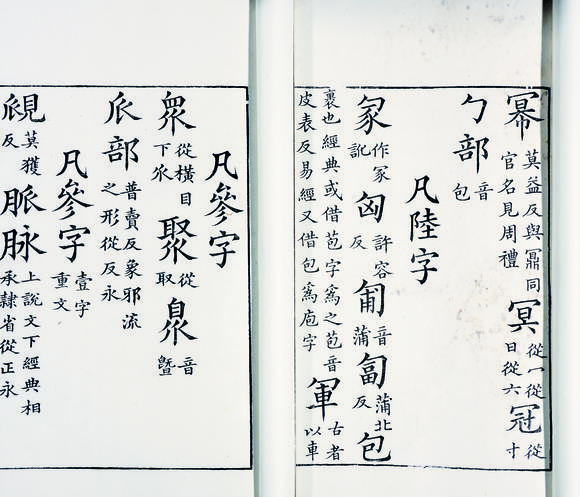 冪莫益反與鼏同官名見周禮冥從冖從日從六冠從寸
勹部音包
凡陸字
冡作冢訛匈許容反匍音蒲匐蒲北反包
裹也經典或借苞字爲之苞音皮表反易經又借包爲庖字軍古者以車
凡參字
眾從橫目下㐺聚從取臮音曁
𠂢部普賣反象邪流之形從反永
凡參字壹字重文
覛莫獲反脈脉上說文下經典相承隸省從正永